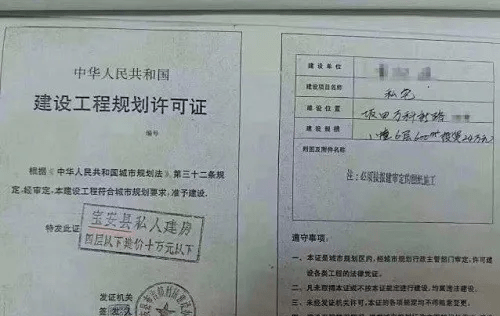 中华人民共和国
建设工程规划许可证
编号
根据《中华人民共和国城市规划法》第三十二条规
定,经审定,本建设工程符合城市规划要求,准予建设。
特发此证
宝安县私人建房
四层以下造价十万元以下
发证机关
建设单位
建设项目名称
私宅
建设位置
坂田
建设规模
1幢6层600m² 投资24万元
附图及附件名称
注:必须按报建审定的图纸施工
遵守事项:
一、本证是城市规划区内,经城市规划行政主管部门审定,许可建
设各类工程的法律凭证。
二、凡未取得本证或不按本证规定进行建设,均属违法建设。
三、未经发证机关许可,本证的各项规定均不得随意变更。